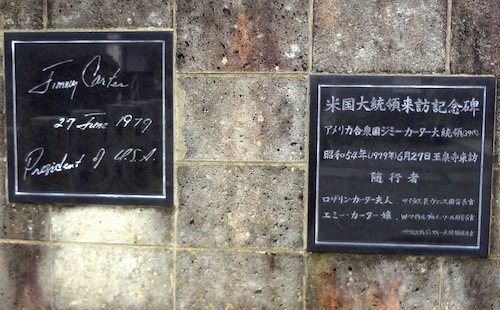 Jimmy Carter
27 June 1979
President of U.S.A.
米国大統領来訪記念碑
アメリカ合衆国ジミー・カーター大統領(39代)
昭和54年(1979年)6月27日玉泉寺来訪
随行者
ロザリン・カーター夫人 サイラス R.ヴァンス国務長官
エミー・カーター嬢